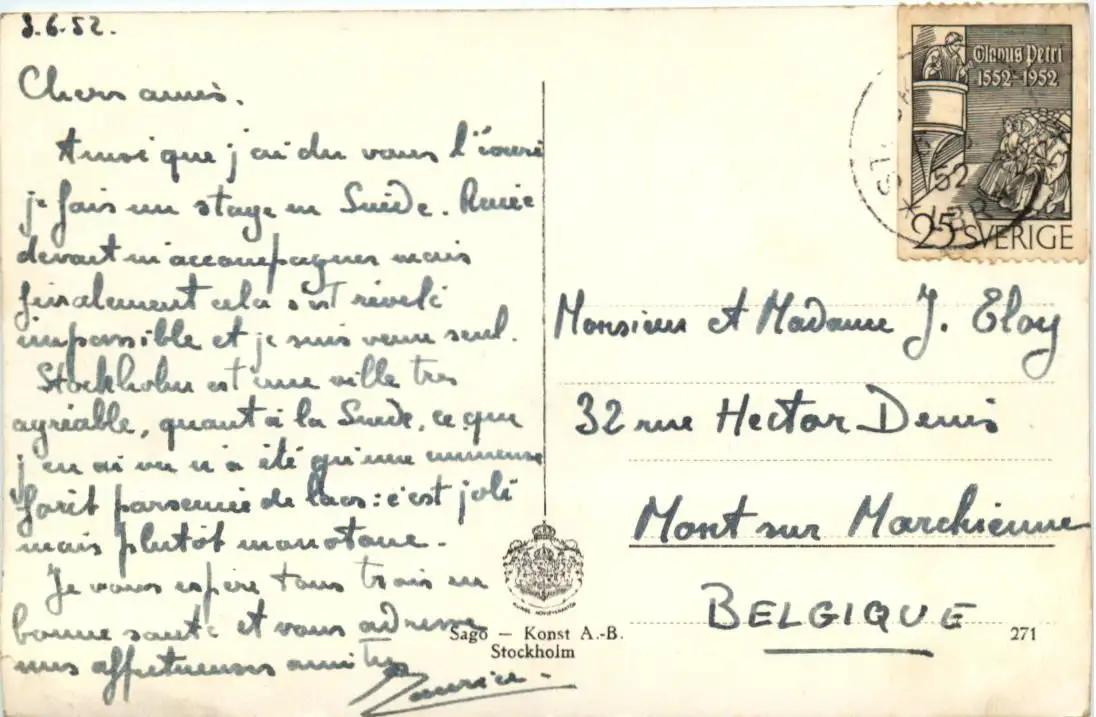 3.6.52.
Chers amis.
Ainsi que j'ai du vous l'écrire
je fais un stage en Suède. Renée
devait m'accompagner mais
finalement cela s'est révélé
impossible et je suis venu seul.
Stockholm est une ville très
agréable, quant à la Suède, ce que
j'en ai vu n'a été qu'une immense
forêt parsemée de lacs : c'est joli
mais plutôt monotone.
Je vous espère tous trois en
bonne santé et vous adresse
mes affectueuses amitiés
Maurice
Olavus Petri
1552-1952
25 SVERIGE
52
Monsieur et Madame J. Eloy
32 rue Hector Denis
Mont sur Marchienne
BELGIQUE
Sago – Konst A.-B.
Stockholm
271